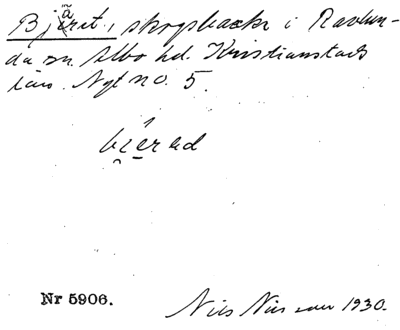 Bjärit, skogsbacke i Ravlun-
da sn. Albo hd. Kristianstads
län. Nyl no. 5.
biẹrəd
Nr 5906.
Nils Nilsson 1930.